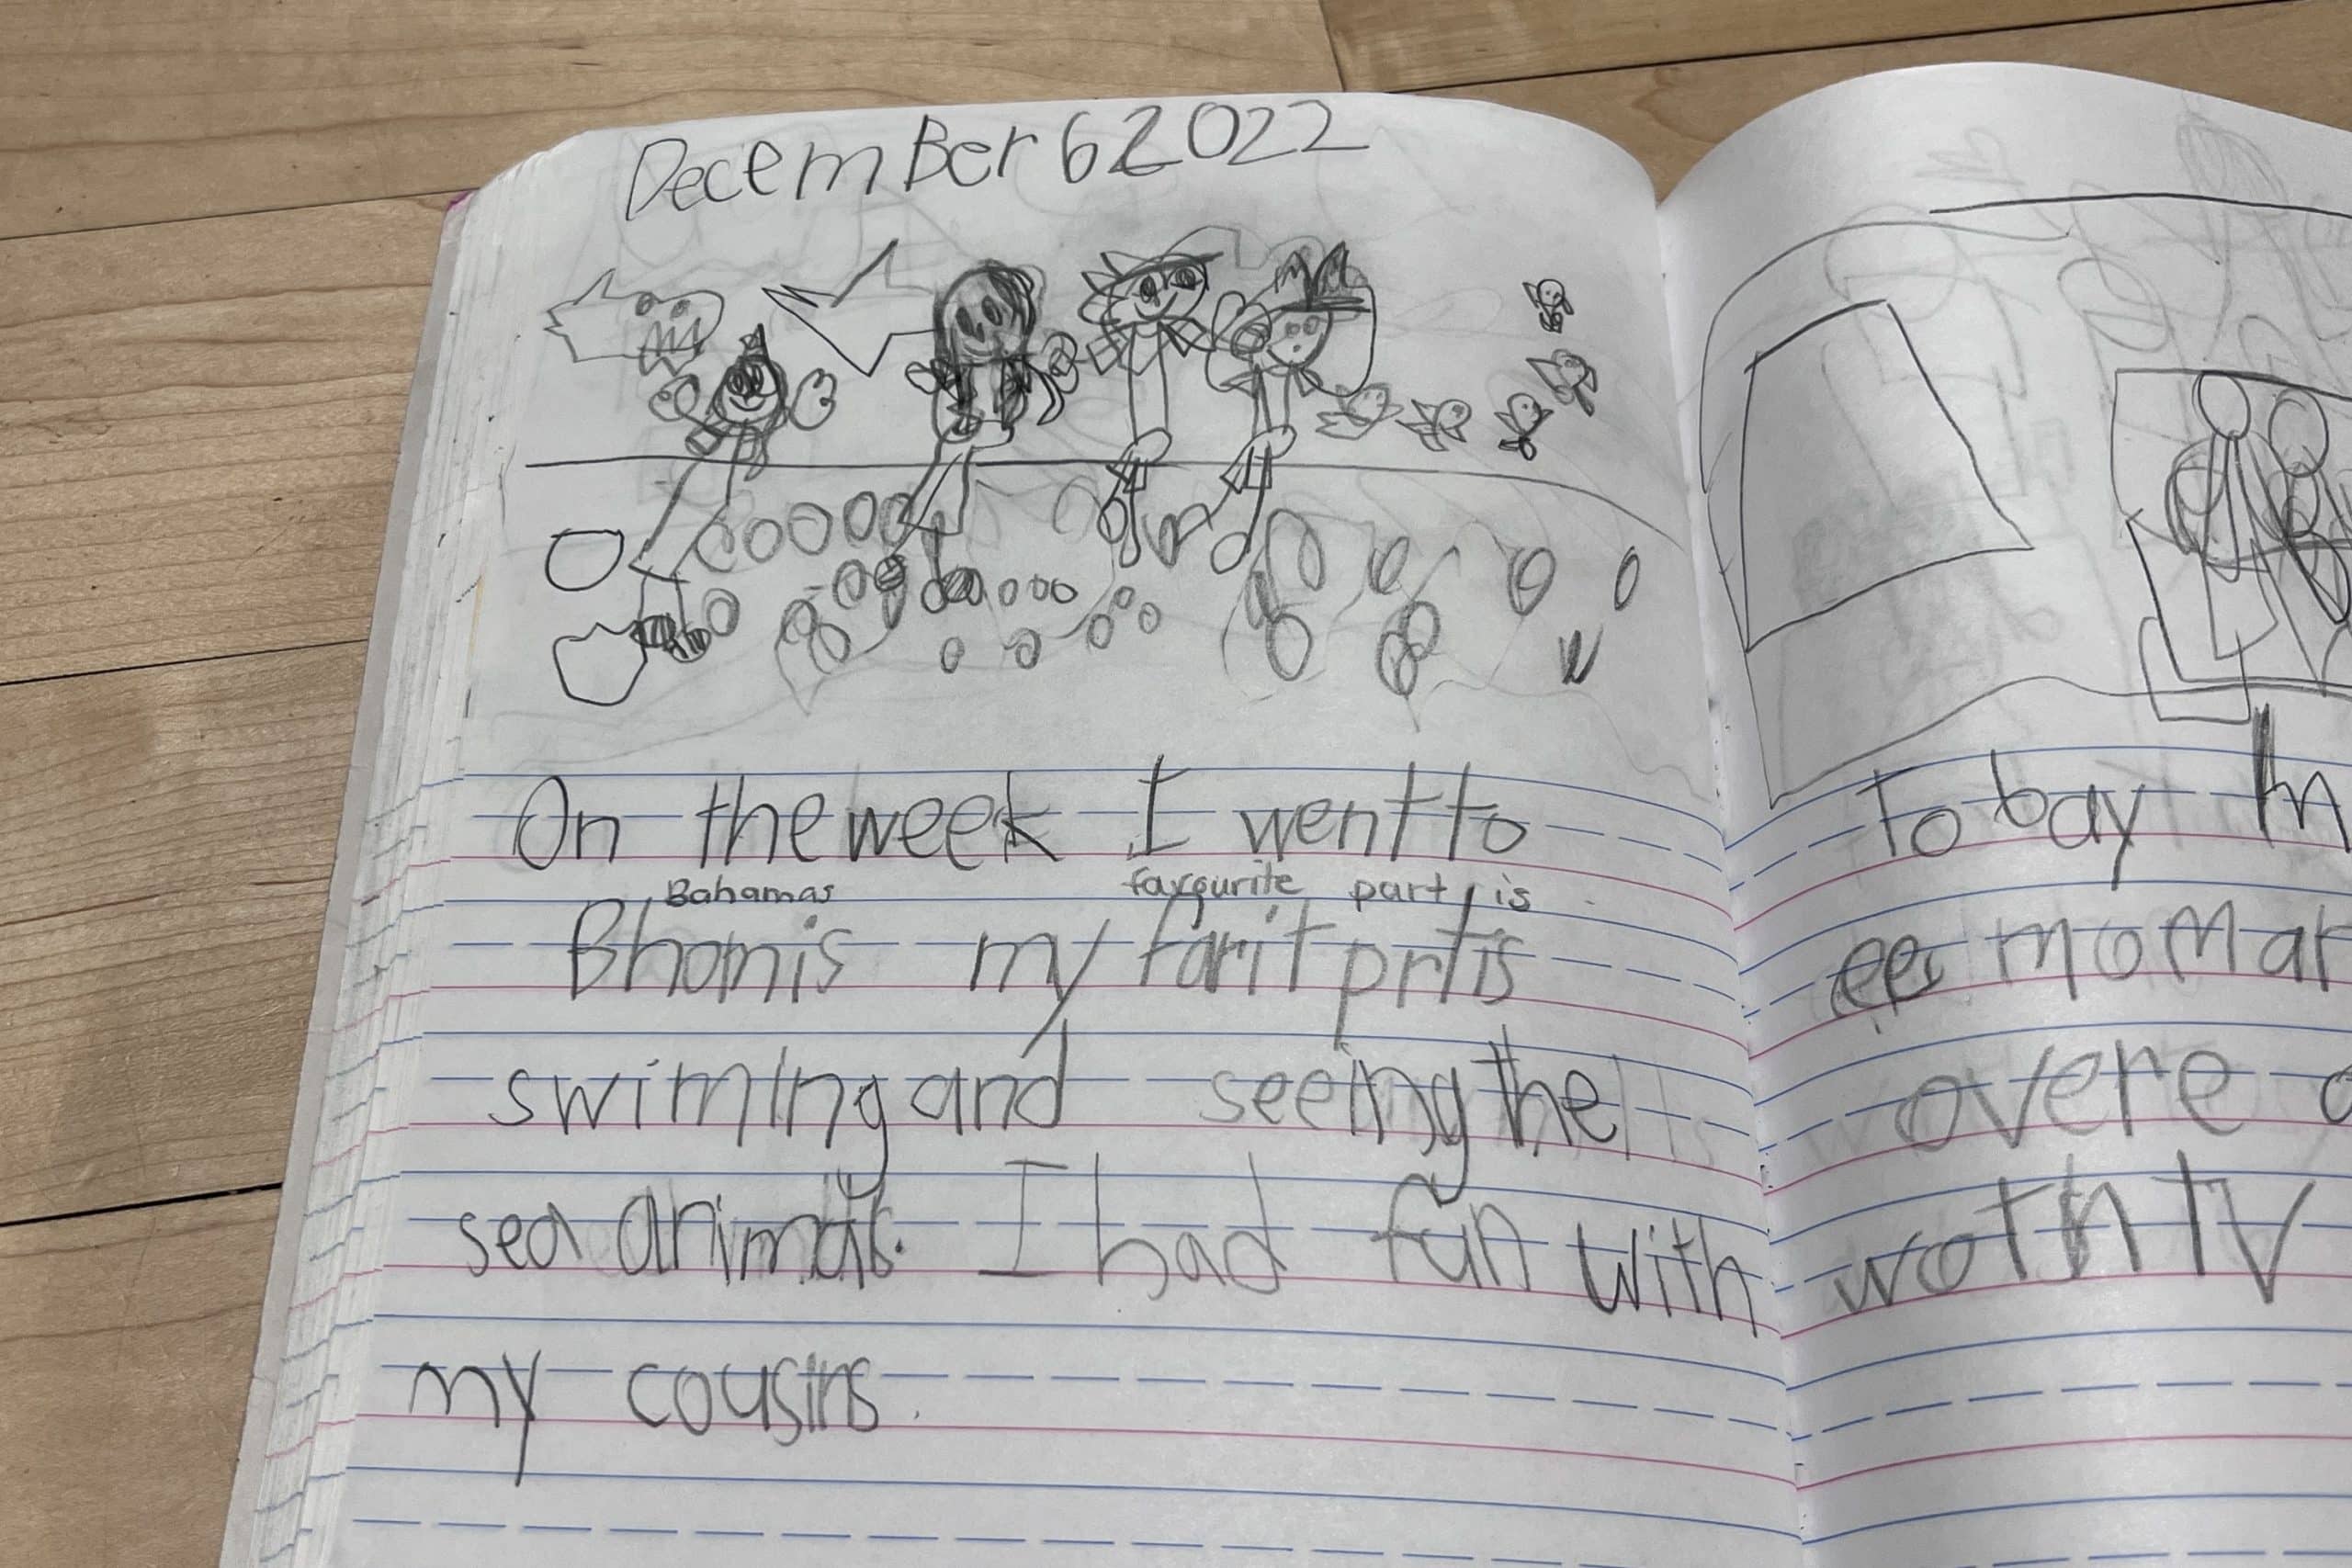 December 6 2022
On the week I went to
Bahamas favourite part is
Bhomis my farit prtis
swiming and seeing the
sea animals. I had fun with
my cousins.
To bay
momar
overe
woth TV